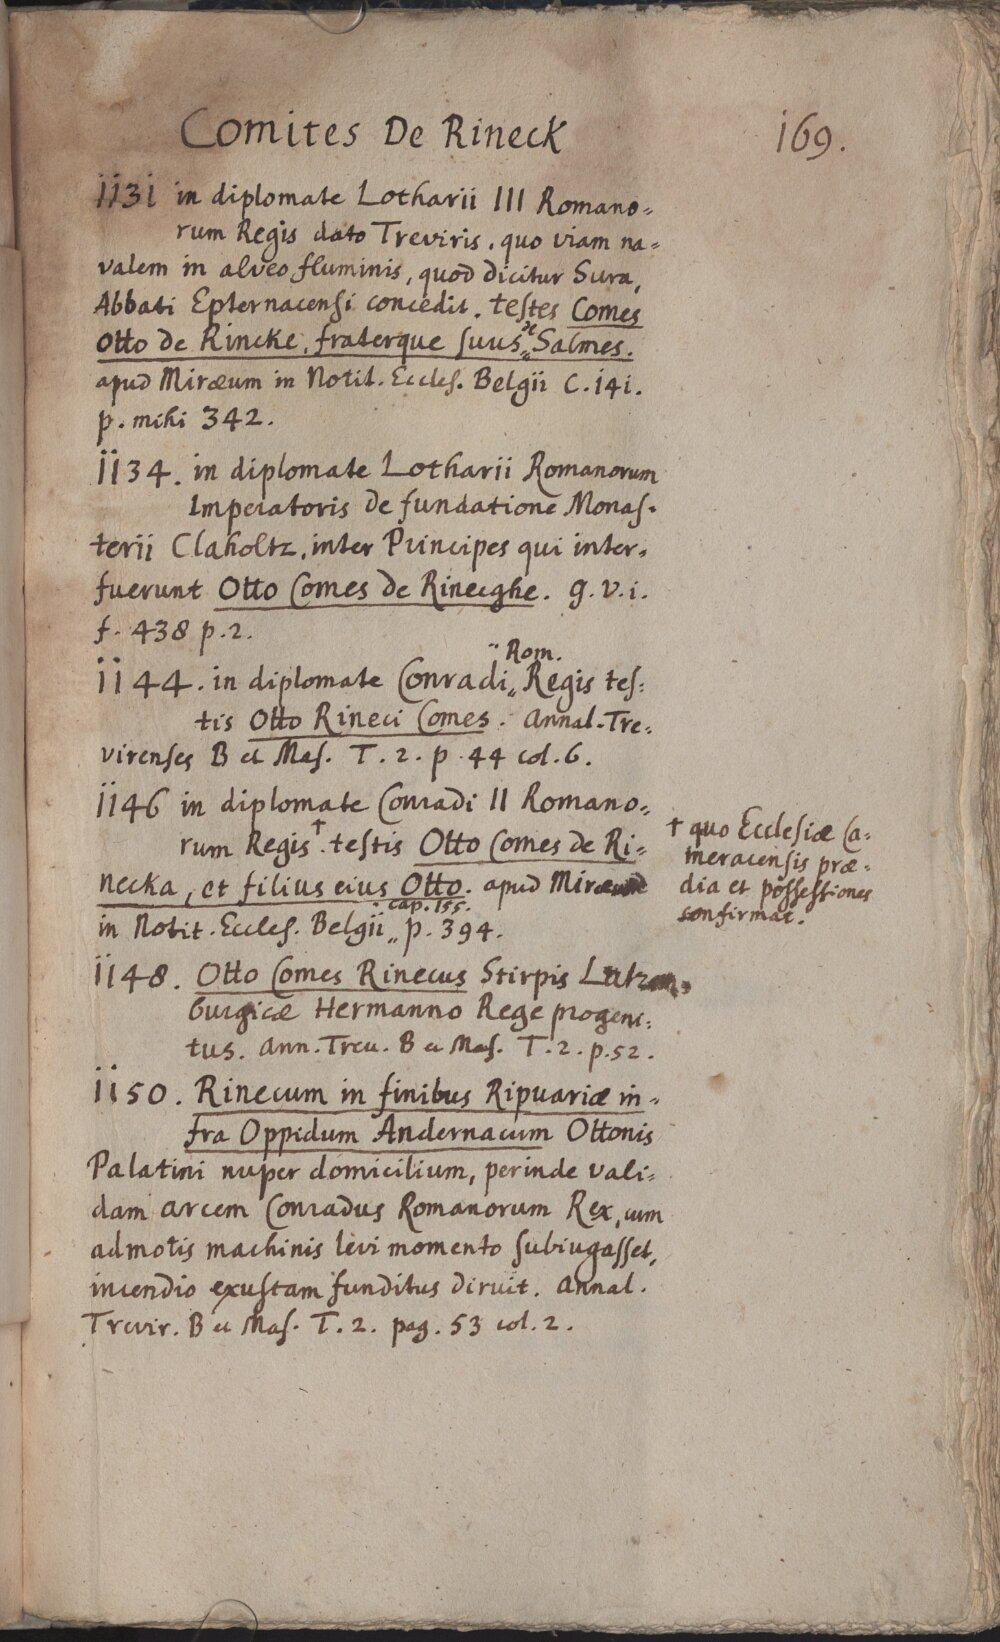 Comites De Rineck
169.
1131 in diplomate Lotharii III Romano=
rum Regis dato Treviris. quo viam na=
valem in alveo fluminis, quod dicitur Sura,
Abbati Epternacensi concedit. testes Comes
Otto de Rincke, fraterque suus de Salmes.
apud Miræum in Notit. Eccles. Belgii C. 141.
p. mihi 342.
1134. in diplomate Lotharii Romanorum
Imperatoris de fundatione Monas=
terii Claholtz, inter Principes qui inter=
fuerunt Otto Comes de Rinecghe. g. v. i.
f. 438 p. 2.
1144. in diplomate Conradi Rom. Regis tes=
tis Otto Rineci Comes. Annal. Tre=
virenses B et Mas. T. 2. p. 44 col. 6.
1146 in diplomate Conradi II Romano=
rum Regis † testis Otto Comes de Ri=
necka, et filius eius Otto. apud Miræum
in Notit. Eccles. Belgii cap. 155. p. 394.
† quo Ecclesiæ Ca=
meracensis præ=
dia et possessiones
confirmat.
1148. Otto Comes Rinecus Stirpis Lutzen=
burgicæ Hermanno Rege progeni=
tus. Ann. Trev. B et Mas. T. 2. p. 52.
1150. Rinecum in finibus Ripuariæ in=
fra Oppidum Andernacum Ottonis
Palatini nuper domicilium, perinde vali=
dam arcem Conradus Romanorum Rex, cum
admotis machinis levi momento subiugasset,
incendio exustam funditus diruit. Annal.
Trevir. B et Mas. T. 2. pag. 53 col. 2.